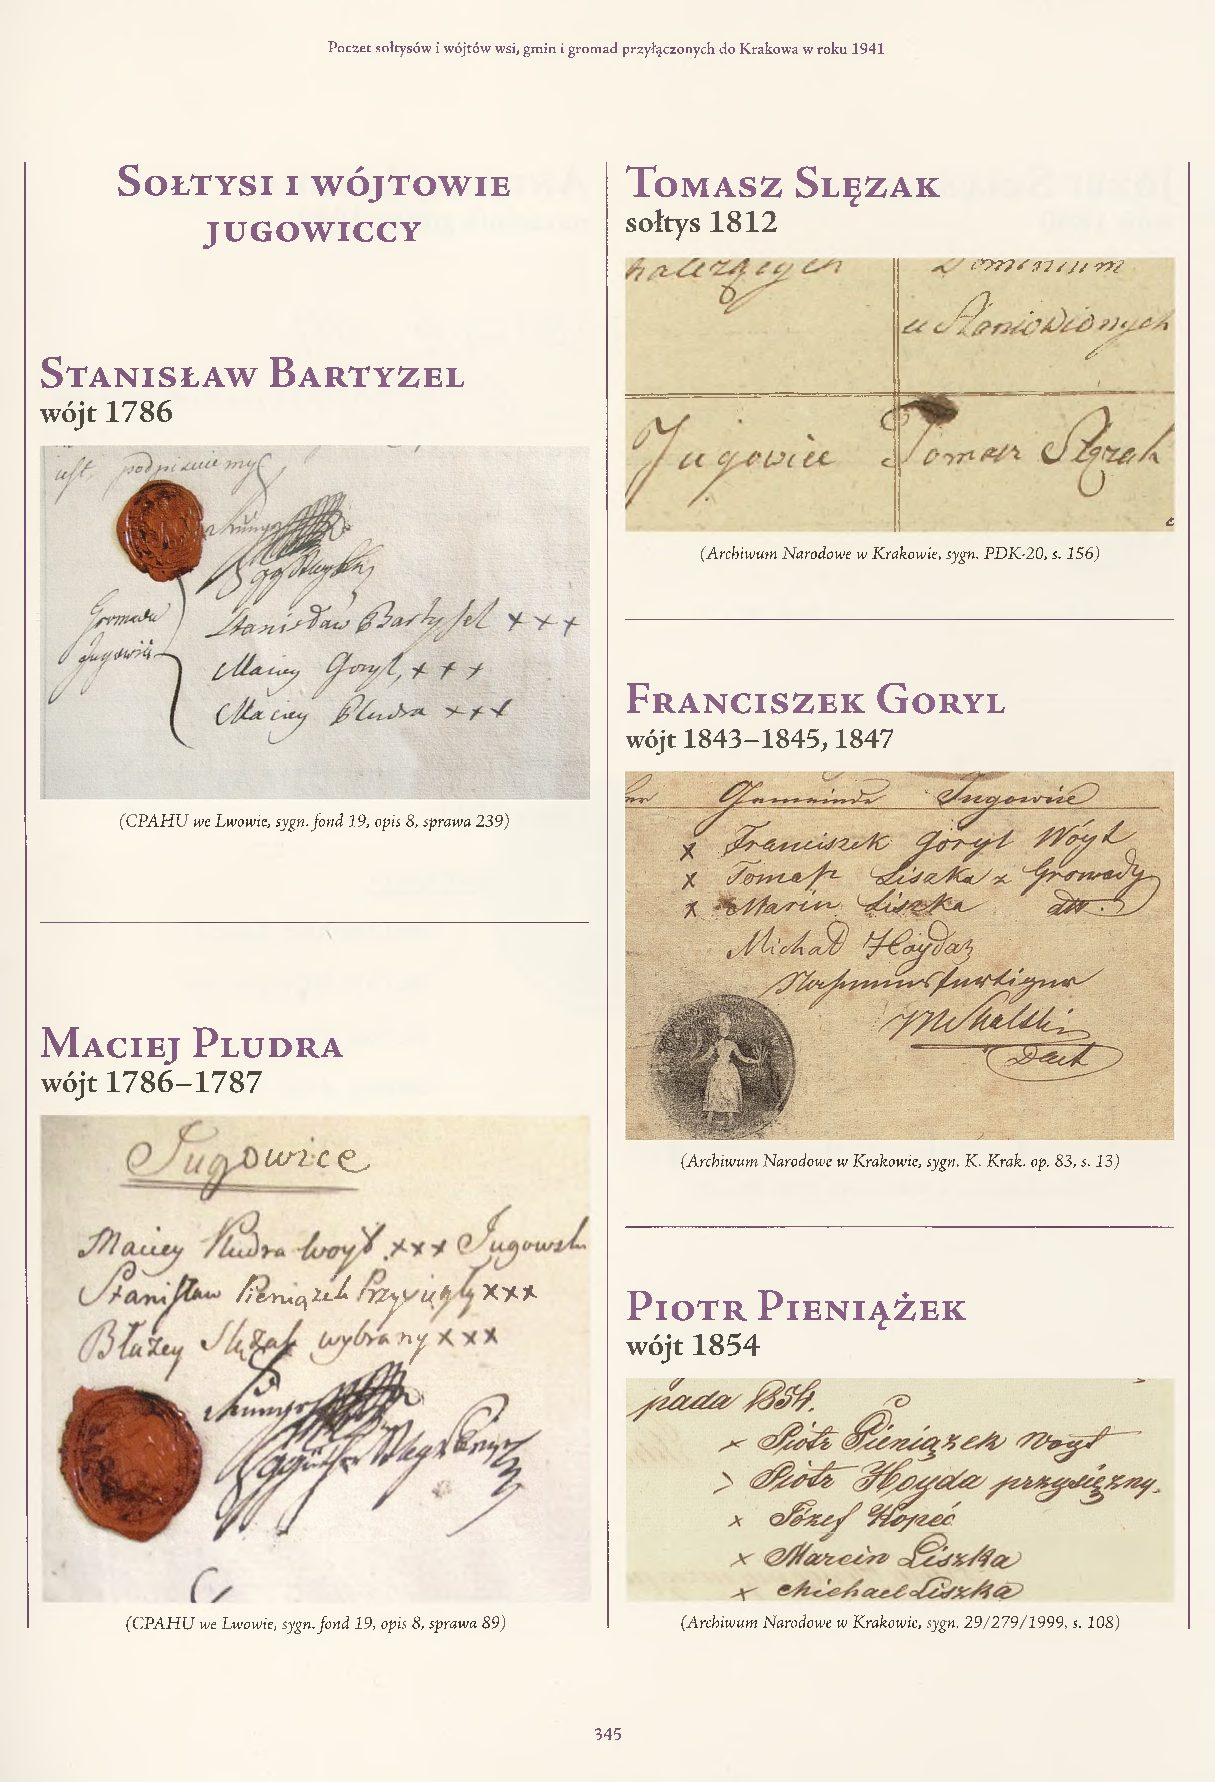 Poczet sołtysów i wójtów wsi, gmin i gromad przyłączonych do Krakowa w roku 1941
Sołtysi i wójtowie
jugowiccy
Stanisław Bartyzel
wójt 1786
jest, podpisuiemy
Gromada
Jugowic
Stanisław Bartyzel x x x
Maciey Goryl, x x x
Maciey Pludra x x x
(CPAHU we Lwowie, sygn. fond 19, opis 8, sprawa 239)
Maciej Pludra
wójt 1786–1787
Jugowice
Maciey Pludra woyt xxx Jugowski
Stanisław Pieniązek Przysięgły xxx
Błazey Slęzak wybrany x x x
(CPAHU we Lwowie, sygn. fond 19, opis 8, sprawa 89)
Tomasz Slęzak
sołtys 1812
nalezących Dominium
u Staniowionych
Jugowice Tomasz Slęzak
(Archiwum Narodowe w Krakowie, sygn. PDK-20, s. 156)
Franciszek Goryl
wójt 1843–1845, 1847
Gemeinde Jugowice
x Franciszek Goryl Wóyt
x Tomasz Liszka z Gromady
x Marcin Liszka dtto.
Michał Hoydaz
Namensfertiger
(Archiwum Narodowe w Krakowie, sygn. K. Krak. op. 83, s. 13)
Piotr Pieniążek
wójt 1854
pada 1854.
x Piotr Pieniązek Woyt
x Piotr Hoyda przysięzny.
x Józef Kopeć
x Marcin Liszka
x Michael Liszka
(Archiwum Narodowe w Krakowie, sygn. 29/279/1999, s. 108)
345